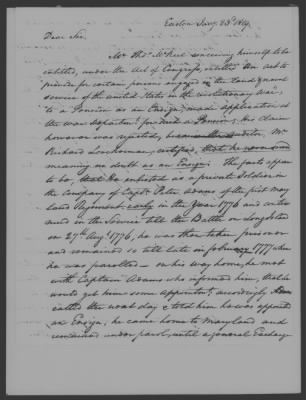 Easton Jany. 23d 1819.
Dear Sir.
Mr. Thos. McKeel conceiving himself to be
entitled, under the Act of Congress, entitled An act to
provide for certain persons engaged in the land & naval
service of the United States in the revolutionary war,
to a Pension as an Ensign, made application at
the War Department for such a Pension; his claim
however was rejected, Mr.
Richard certified, that he was
meaning no doubt as an Ensign: The facts appear
to be, that he enlisted as a private Soldier in
the Company of Capt. Peter Adams of the first mary
land Regiment, early in the year 1776 and conti
nued in the Service till the Battle on Long Island
on 27th Augt. 1776, he was then taken prisoner
and remained so till late in February 1777 when
he was parolled — on his way home, he met
with Captain Adams who informed him, that he
would get him some Appointmt. accordingly,
called the next day & told him he was appointed
an Ensign; he came home to Maryland and
remained under parol, until a general Exchang